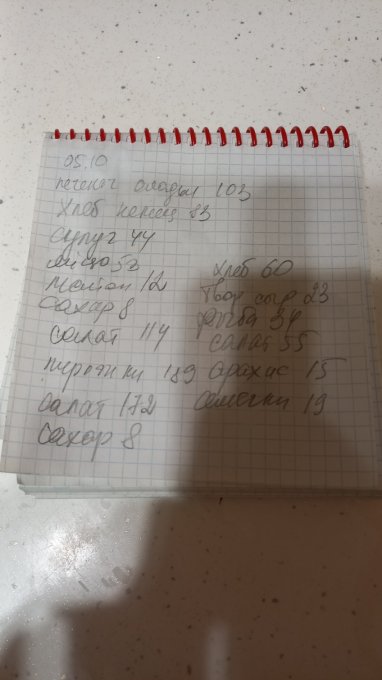 05.10
печеноч оладьи 103
хлеб немец 83
сулуг 44
яйцо 53
желток 12
сахар 8
салат 114
пирожки 189
салат 172
сахар 8
хлеб 60
твор сыр 23
рыба 34
салат 55
арахис 15
семечки 19